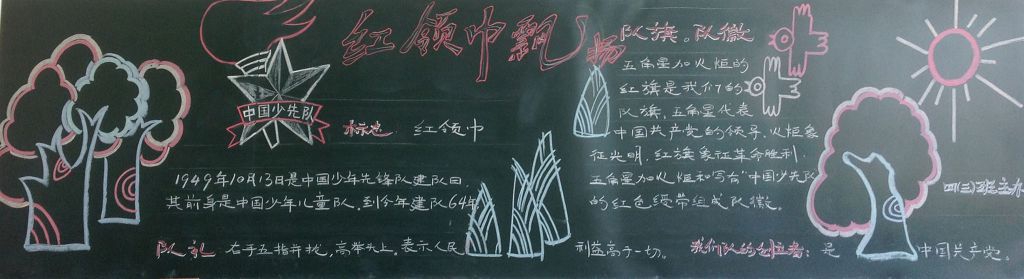 红领巾飘扬
中国少先队
标志 红领巾
1949年10月13日是中国少年先锋队建队日
其前身是中国少年儿童队.到今年建队64年
队礼 右手五指并拢,高举头上.表示人民
利益高于一切。
队旗。队徽
五角星加火炬的
红旗是我们的
队旗,五角星代表
中国共产党的领导,火炬象
征光明,红旗象征革命胜利.
五角星加火炬和写有"中国少先队
的红色绶带组成队徽。
我们队的创立者:是 中国共产党。
四(三)班主办